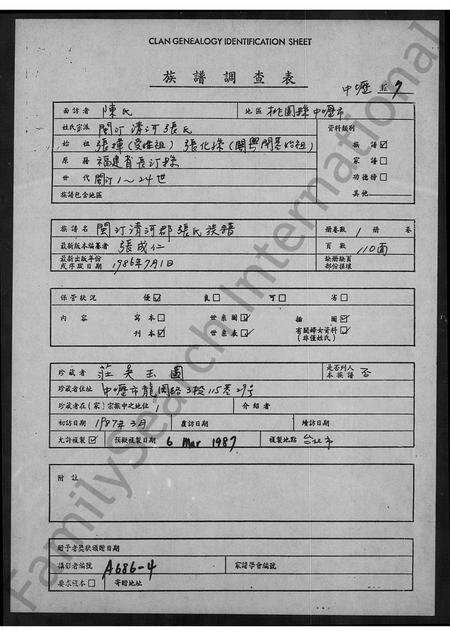 CLAN GENEALOGY IDENTIFICATION SHEET
族譜調查表
中壢 7
面訪者 陳氏 地區 桃園縣中壢市
姓氏宗派 閩汀清河張氏 資料類別
始祖 張揮(受姓祖) 張化孫(閩粵開基始祖) 族譜☑
原籍 福建省長汀縣 家譜☐
世代 閩汀1~24世 功德榜☐
族譜包含地區 其他
族譜名 閩汀清河郡張氏族譜 冊卷數 1 冊 卷
最新版本編纂者 張成仁 頁數 110面
最新出版年份或序跋日期 1986年7月1日 缺冊缺頁部份損壞
保管狀況 優☑ 良☐ 可☐ 劣☐
內容 寫本☐ 世系圖☑ 插圖☑
刊本☑ 世系表☑ 有關婦女資料☑(非僅姓氏)
珍藏者 莊吳玉圓 是否列入本族譜 否
珍藏者住址 中壢市龍岡路3段115巷29号
珍藏者在(家)宗族中之地位 介紹者
初訪日期 1987年3月 覆訪日期 續訪日期
允許複製☑ 預擬複製日期 6 Mar 1987 複製地點 台北市
附註
附予者獎狀頒贈日期
攝影者編號 A686-4 家譜學會編號
要求複本☐ 寄贈地址
FamilySearch International